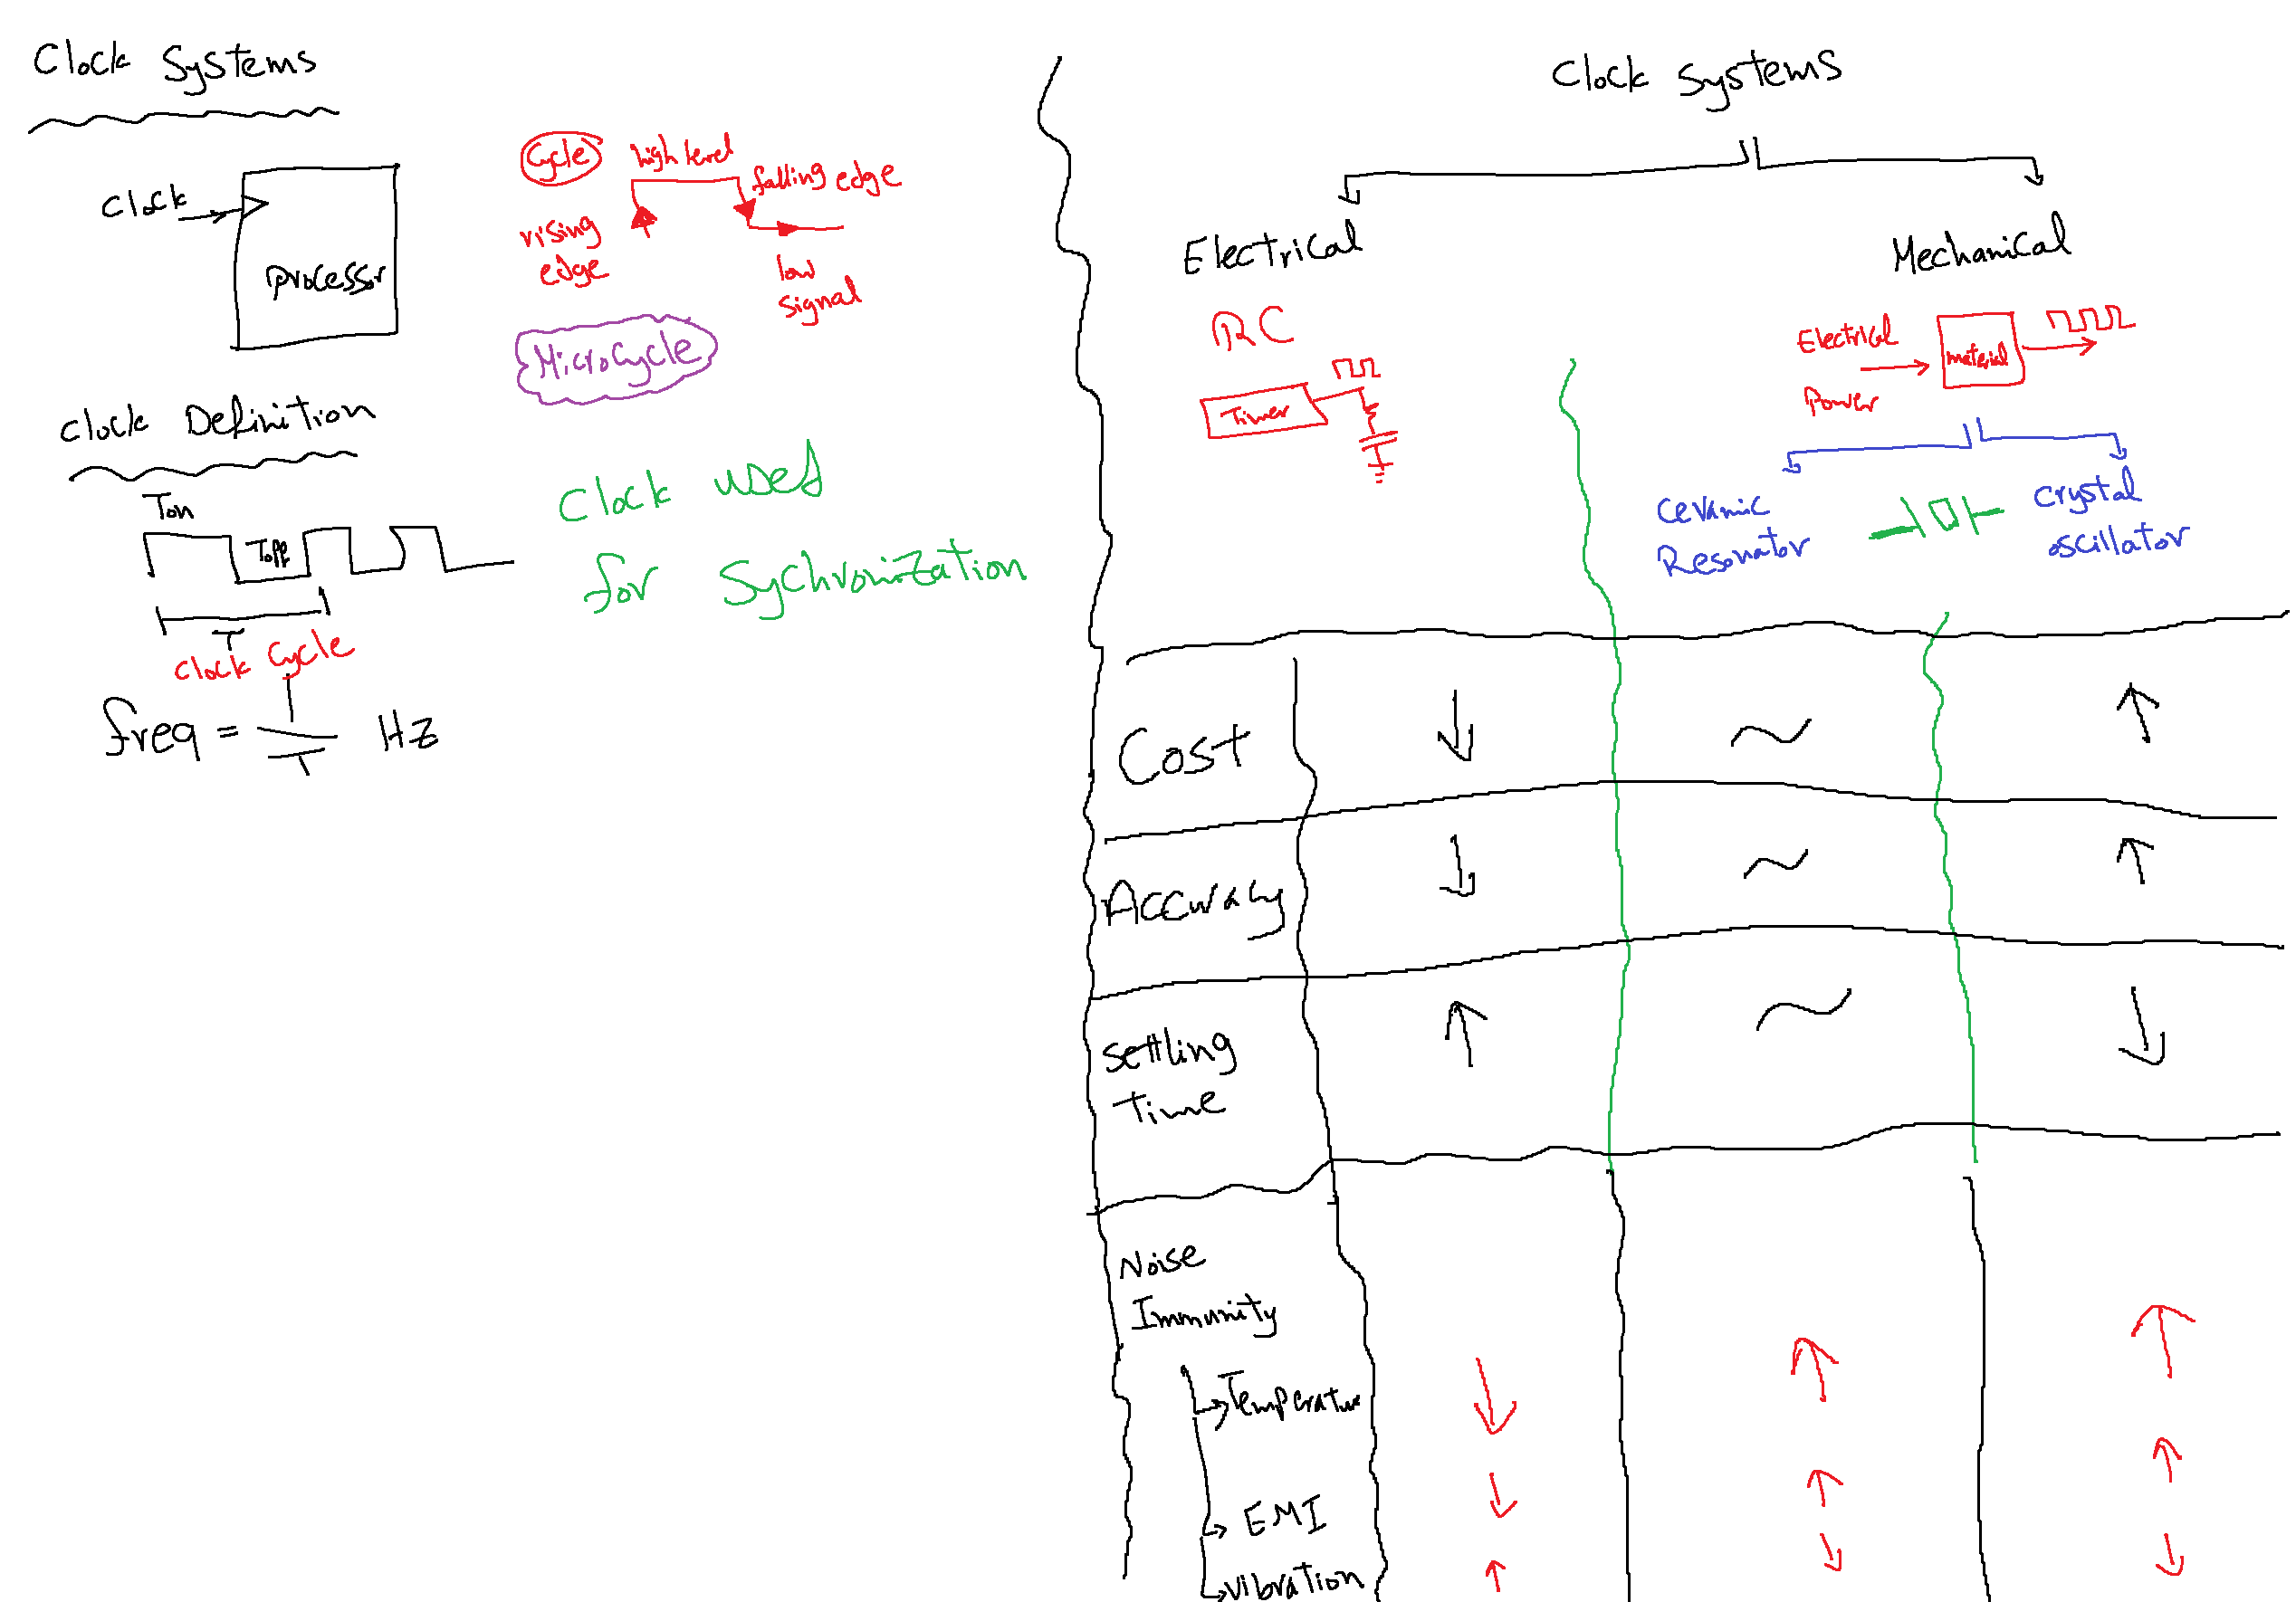 Clock Systems
Clock
processor
Cycle
high level
falling edge
rising
edge
low
signal
MicroCycle
Clock Definition
Ton
Toff
T
Clock Cycle
freq = 1/T Hz
Clock used
for Sychronization
Clock Systems
Electrical
Mechanical
RC
Timer
Electrical
Power
material
Ceramic
Resonator
Crystal
oscillator
Cost ↓ ~ ↑
Accuracy ↓ ~ ↑
Settling
Time ↑ ~ ↓
Noise
Immunity
Temperature ↓ ↑ ↑
EMI ↓ ↑ ↑
vibration ↑ ↓ ↓